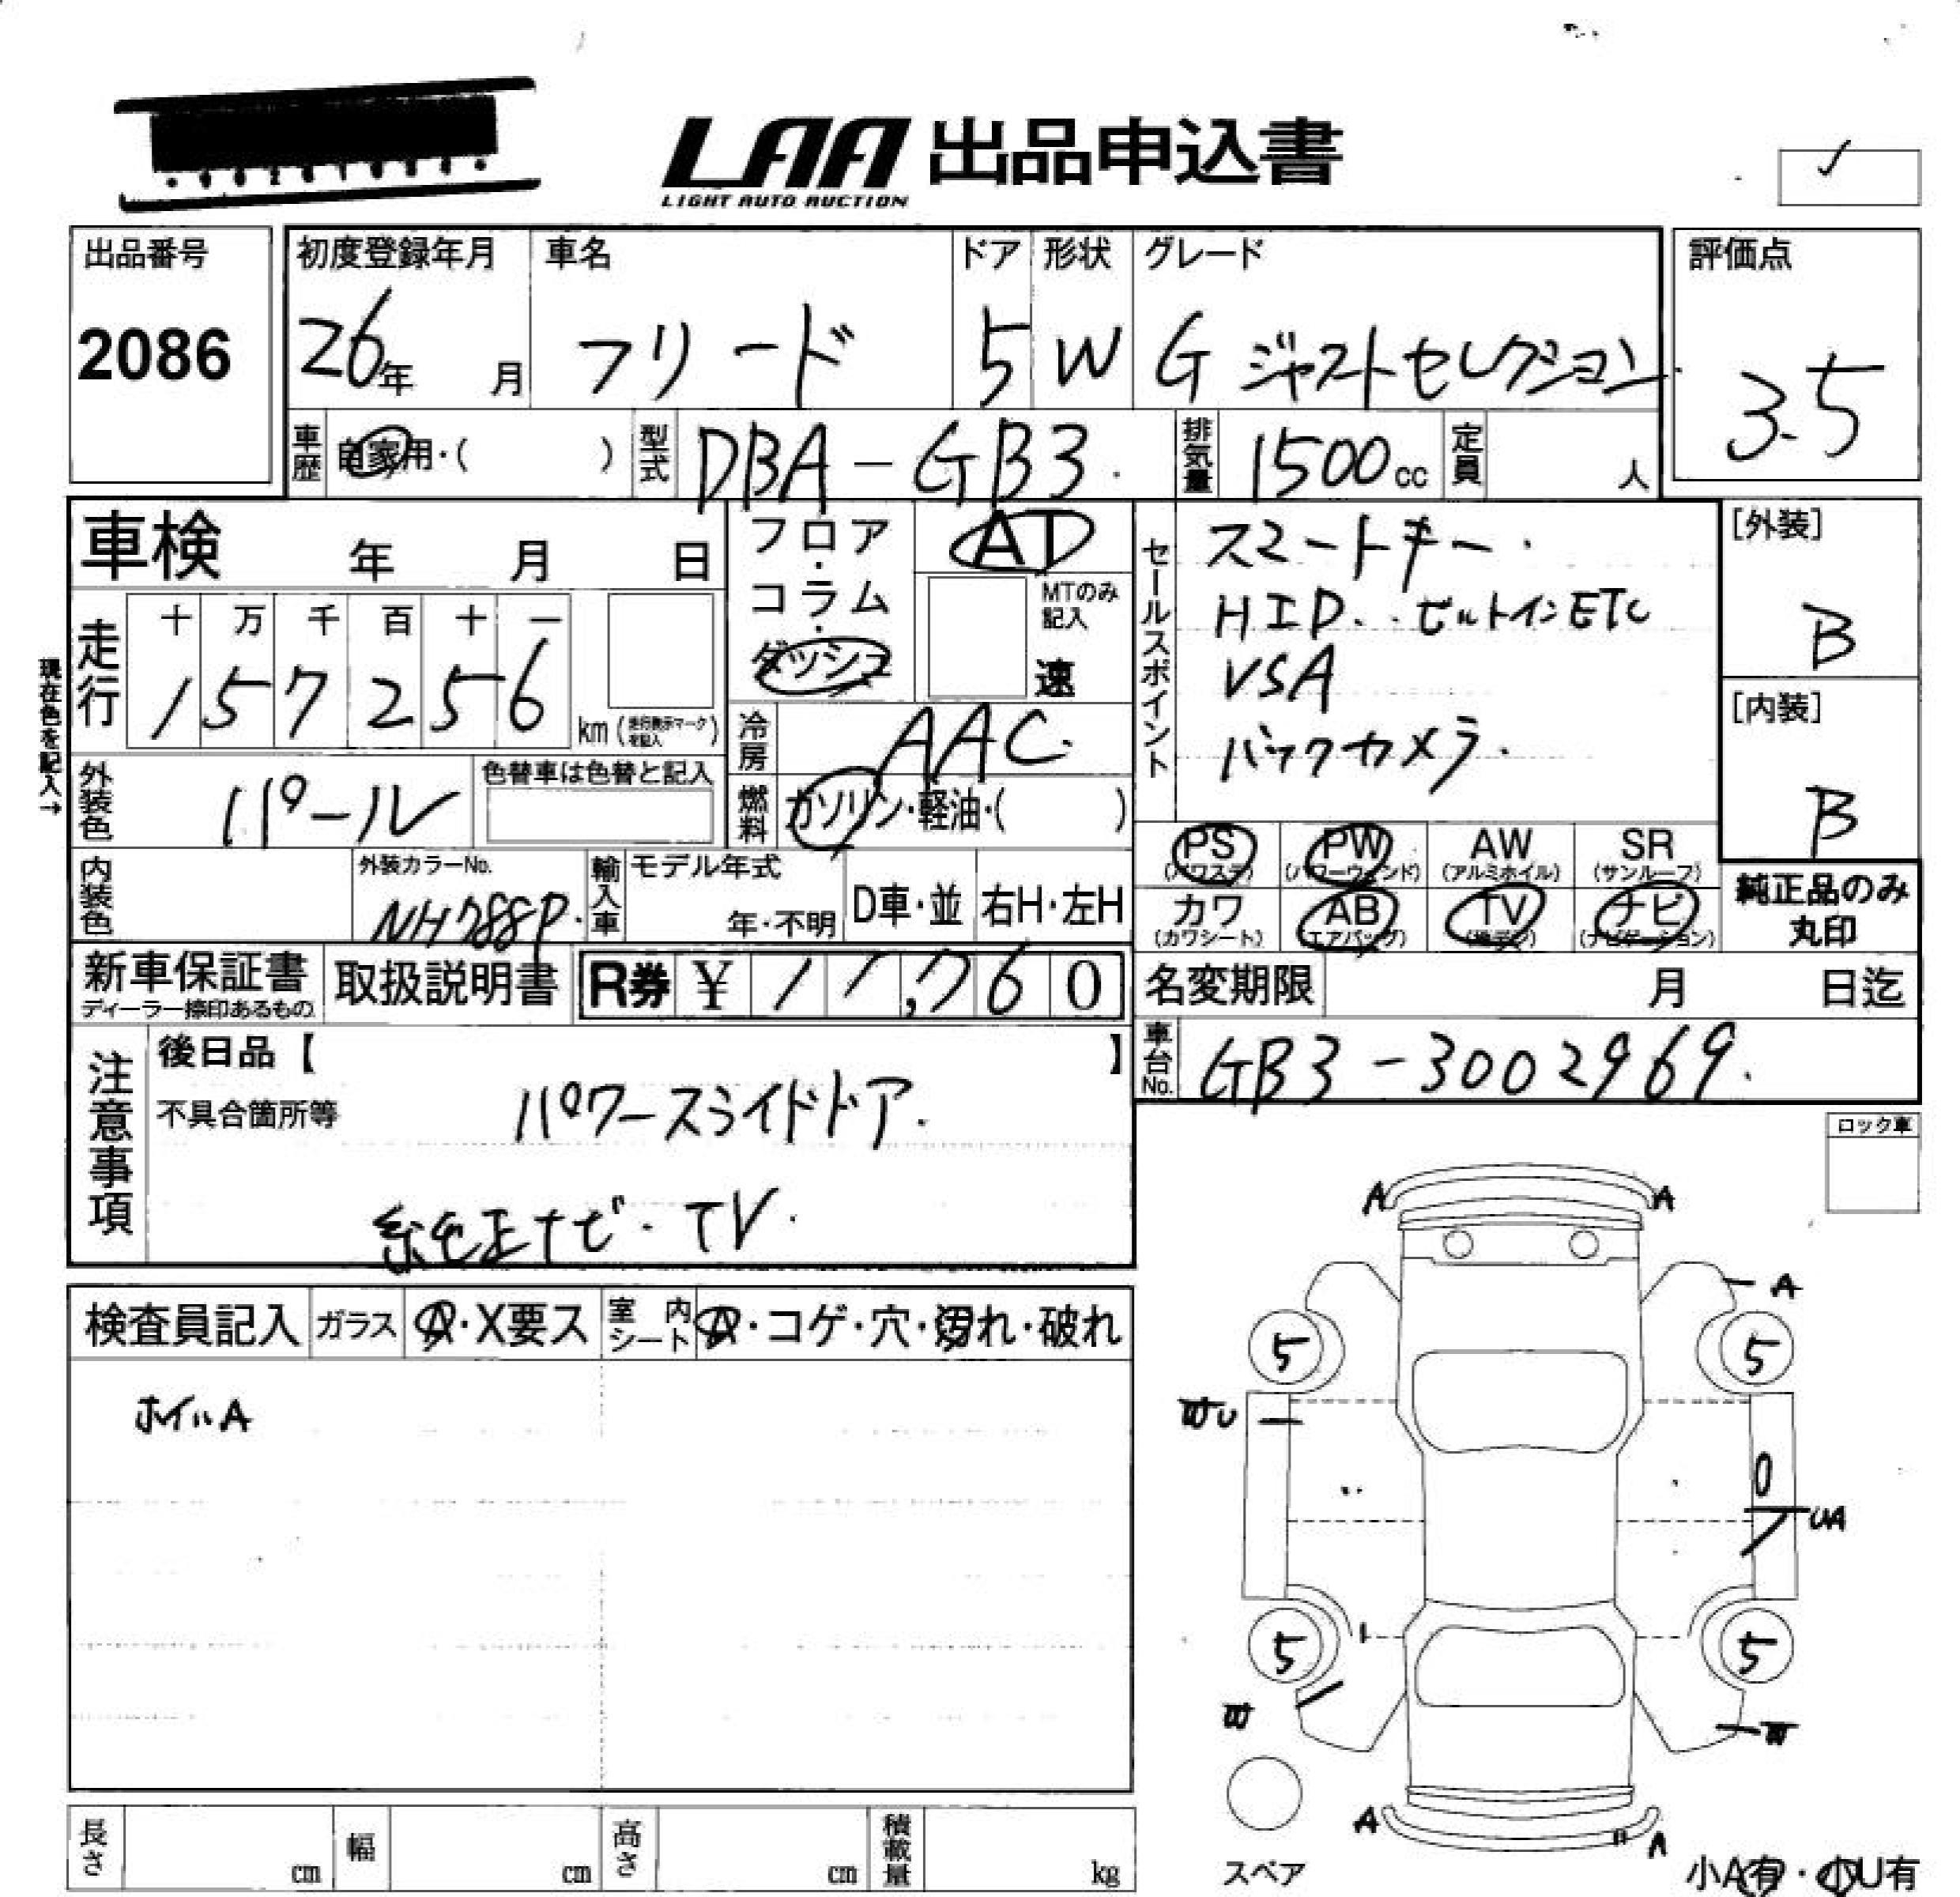 LAA 出品申込書
LIGHT AUTO AUCTION
出品番号
2086
初度登録年月
26年 月
車名
フリード
ドア
5
形状
W
グレード
G ジャストセレクション
評価点
3.5
車歴
自家用・( )
型式
DBA-GB3
排気量
1500cc
定員
人
車検 年 月 日
フロア・コラム・ダッシュ
AT
MTのみ記入
速
セールスポイント
スマートキー
HID ビルトインETC
VSA
バックカメラ
[外装]
B
[内装]
B
現在色を記入→
走行
十 万 千 百 十 一
1 5 7 2 5 6
km (走行表示マークを記入)
冷房
AAC
外装色
パール
色替車は色替と記入
燃料
ガソリン・軽油・( )
PS (パワステ)
PW (パワーウィンド)
AW (アルミホイル)
SR (サンルーフ)
カワ (カワシート)
AB (エアバッグ)
TV (地デジ)
ナビ (ナビゲーション)
純正品のみ
丸印
内装色
外装カラーNo.
NH788P
輸入車
モデル年式
年・不明
D車・並
右H・左H
新車保証書
ディーラー捺印あるもの
取扱説明書
R券 ¥ 1 1,7 6 0
名変期限 月 日迄
車台No.
GB3-3002969
注意事項
後日品【 】
不具合箇所等
パワースライドドア
純正ナビ・TV
ロック車
検査員記入
ガラス
A・X要ス
室内シート
A・コゲ・穴・汚れ・破れ
ホイルA
A
A
A
5
5
U
UA
5
5
A
A
スペア
小A有・小U有
長さ cm
幅 cm
高さ cm
積載量 kg